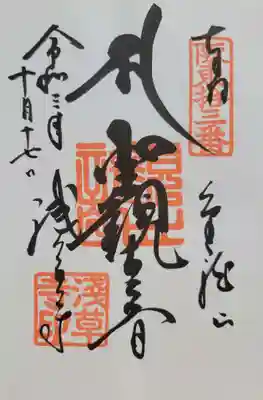 奉拝
坂東拾三番
金龍山
聖觀世音
浅草寺
浅草寺印
令和三年
十月十七日